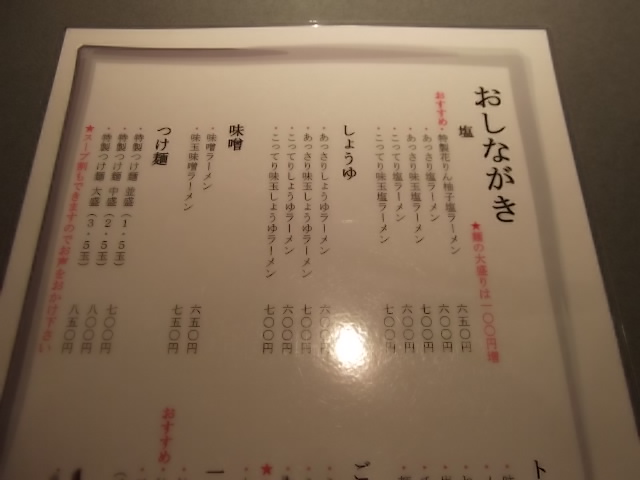 おしながき
★麺の大盛りは一〇〇円増
塩
おすすめ・特製花りん柚子塩ラーメン 六五〇円
・あっさり塩ラーメン 六〇〇円
・あっさり味玉塩ラーメン 七〇〇円
・こってり塩ラーメン 六〇〇円
・こってり味玉塩ラーメン 七〇〇円
しょうゆ
・あっさりしょうゆラーメン 六〇〇円
・あっさり味玉しょうゆラーメン 七〇〇円
・こってりしょうゆラーメン 六〇〇円
・こってり味玉しょうゆラーメン 七〇〇円
味噌
・味噌ラーメン 六五〇円
・味玉味噌ラーメン 七五〇円
つけ麺
・特製つけ麺 並盛（1．5玉） 七〇〇円
・特製つけ麺 中盛（2．5玉） 八〇〇円
・特製つけ麺 大盛（3．5玉） 八五〇円
★スープ割もできますのでお声をおかけ下さい
ト
ご
★
一
おすすめ